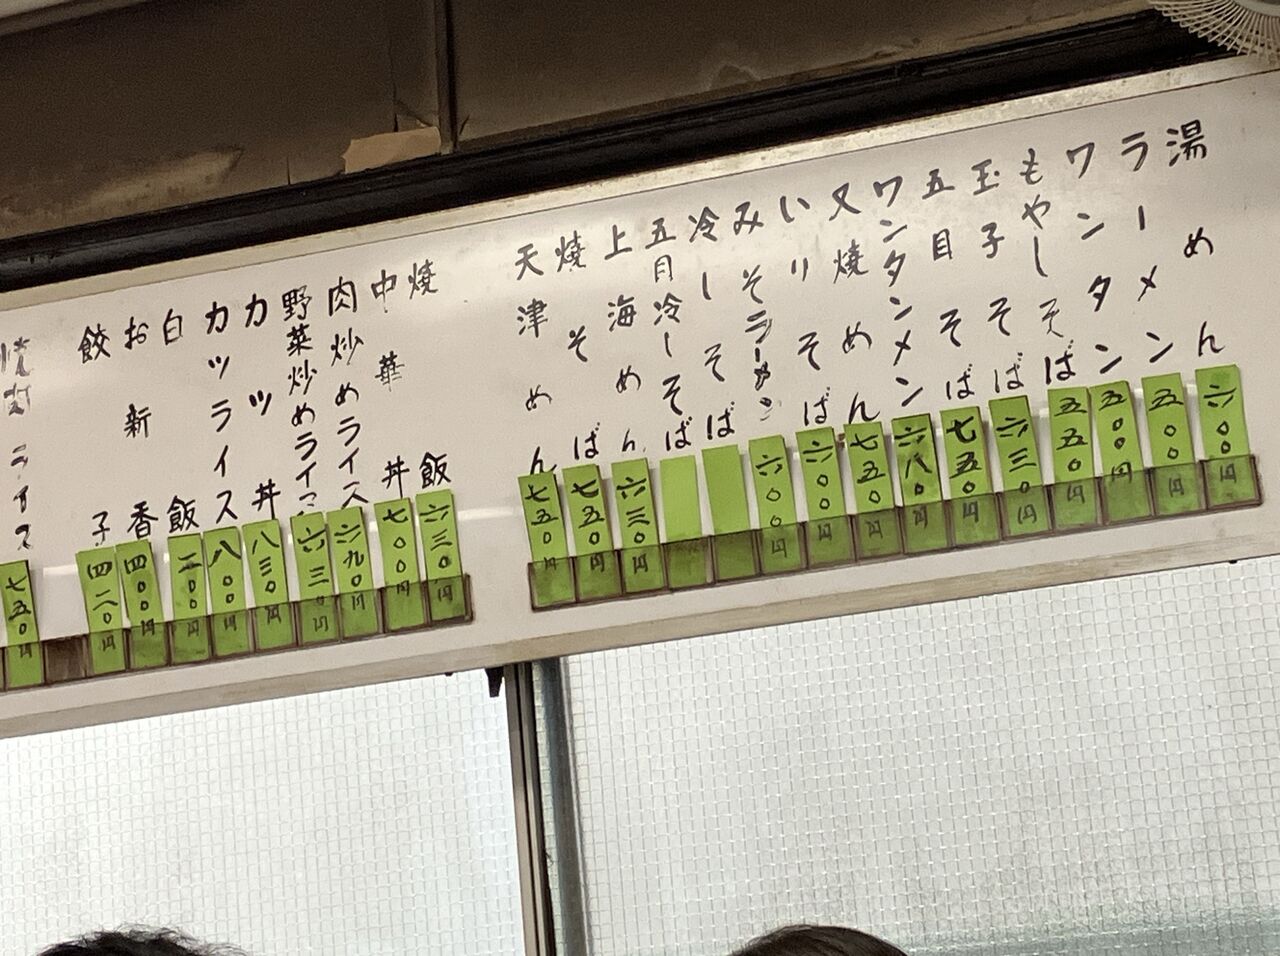 湯めん 六〇〇円
ラーメン 五〇〇円
ワンタン 五〇〇円
もやしそば 五五〇円
玉子そば 六三〇円
五目そば 七五〇円
ワンタンメン 六八〇円
叉焼めん 七五〇円
いりそば 六〇〇円
みそラーメン 六〇〇円
冷しそば
五目冷しそば
上海めん 六三〇円
焼そば 七五〇円
天津めん 七五〇円
焼飯 六三〇円
中華丼 七〇〇円
肉炒めライス 六九〇円
野菜炒めライス 六三〇円
カツ丼 八三〇円
カツライス 八〇〇円
白飯 二〇〇円
お新香 四〇〇円
餃子 四二〇円
焼肉ライス 七五〇円